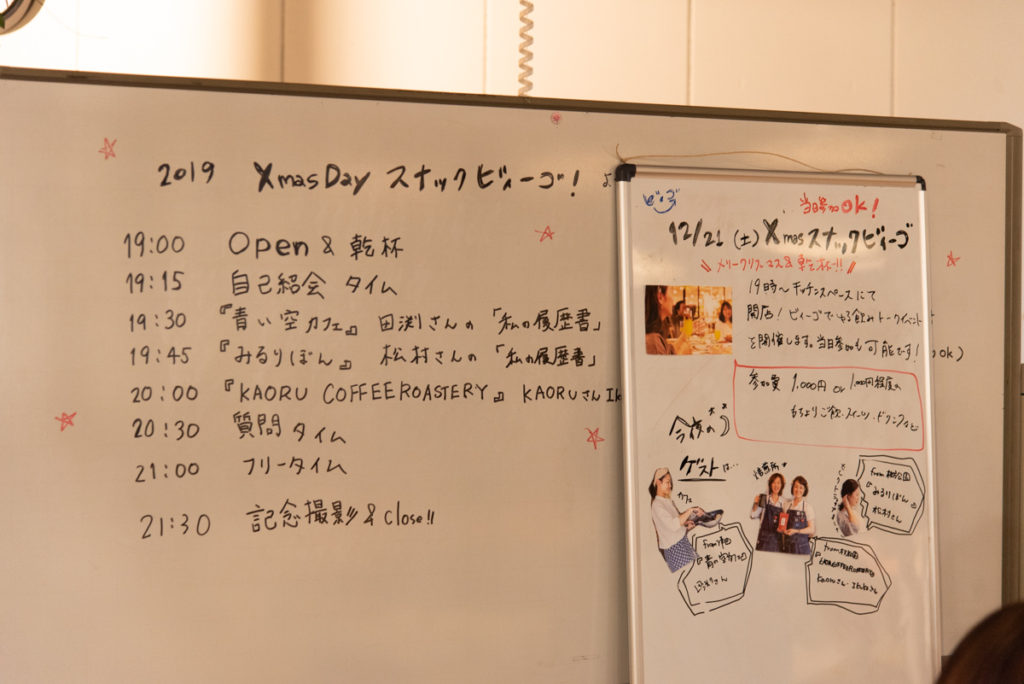 2019 Xmas Day スナックビィーゴ! よ
19:00 Open & 乾杯
19:15 自己紹会 タイム
19:30 『青い空カフェ』 田渕さんの 「私の履歴書」
19:45 『みるりぼん』 松村さんの 「私の履歴書」
20:00 『KAORU COFFEE ROASTERY』 KAORUさん Ik
20:30 質問 タイム
21:00 フリータイム
21:30 記念撮影 & Close!!
ビーゴ
当日参加OK!
12/21 (土) Xmas スナックビィーゴ
メリークリスマス&乾杯!!
19時〜キッチンスペースにて
開店!ビィーゴでゆる飲みトークイベント
を開催します。当日参加も可能です!
ok)
参加費 1,000円 or 1,000円程度の
もちよりご飯・スイーツ・ドリンクなど
今夜の
ゲストは…
カフェ
焙煎所
from
『青い空カフェ』
さん
from
KAORU COFFEE ROASTERY
Kaoruさん・
from
『みるりぼん』
松村さん